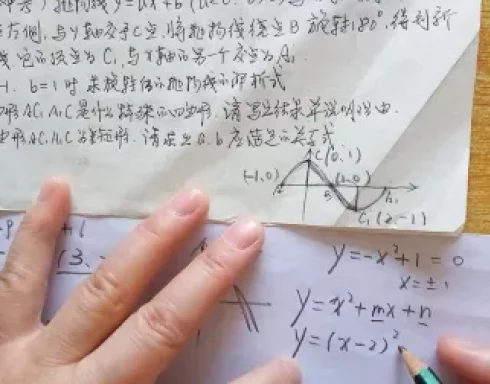 抛物线y=ax²+b
右侧,与y轴交于C点,将抛物线绕点B旋转180°,得到新
线,它的顶点为C₁,与x轴的另一个交点为A₁
-1, b=1时 求旋转后的抛物线的解析式
边形AC₁A₁C是什么特殊的四边形,请写出结果并说明理由.
边形AC₁A₁C为矩形,请求出a、b应满足的关系式
C(0,1)
(-1,0)
(1,0)
A₁
C₁(2,-1)
+1
(3,
y=-x²+1=0
x=±1
y=x²+mx+n
y=(x-2)²